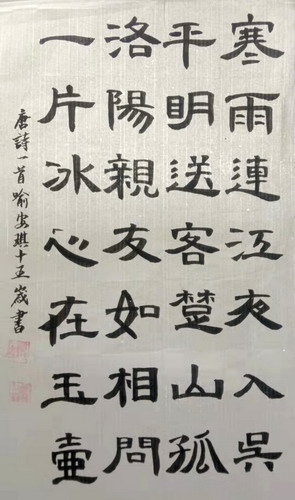 寒雨連江夜入吳
平明送客楚山孤
洛陽親友如相問
一片冰心在玉壺
唐詩一首喻安琪十五歲書